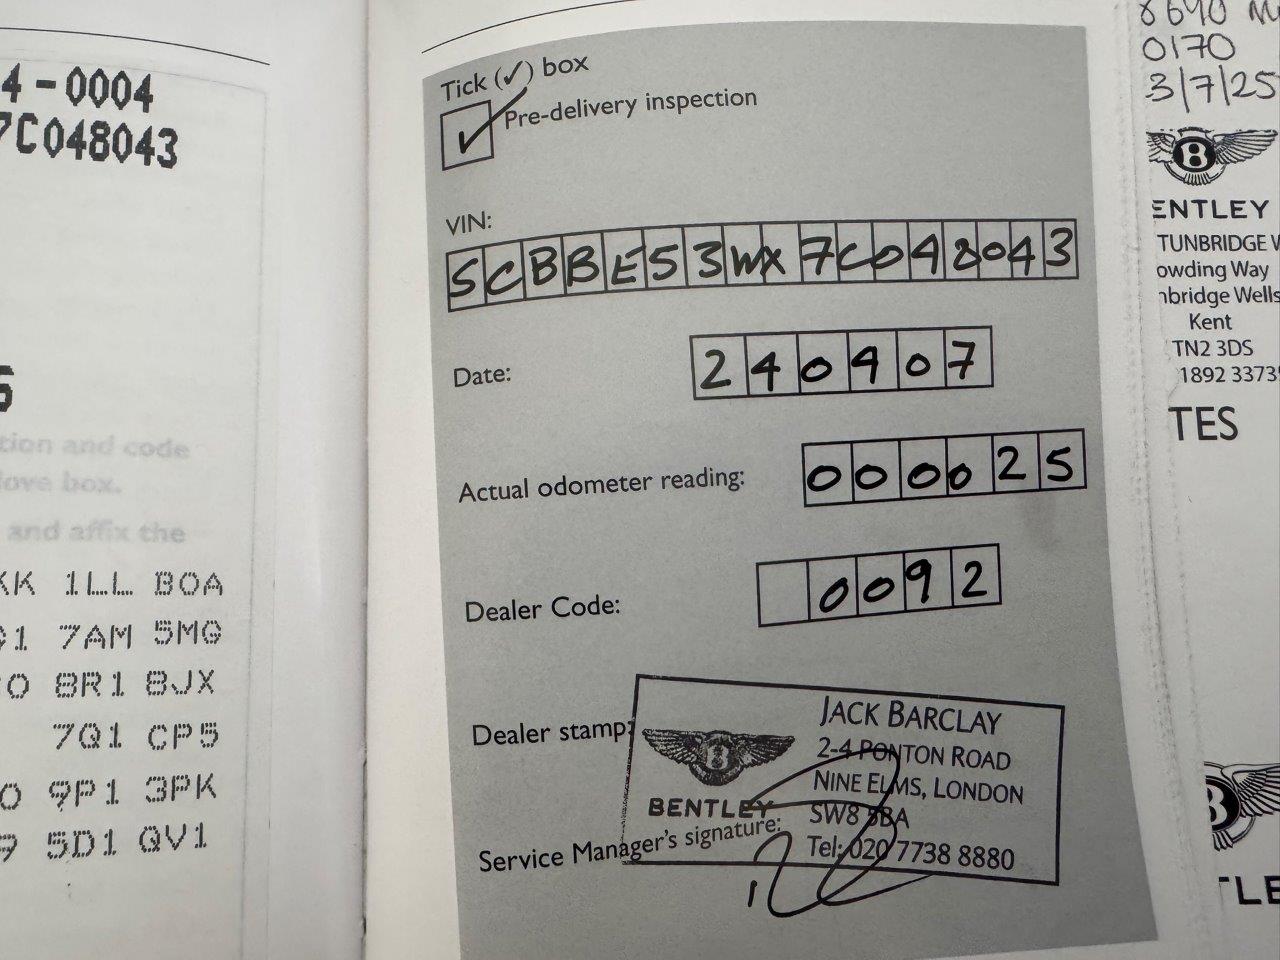 4-0004
7C048043
5
tion and code
love box.
and affix the
KK 1LL BOA
1 7AM 5MG
0 8R1 8JX
7Q1 CP5
0 9P1 3PK
9 5D1 QV1
Tick (✓) box
✓ Pre-delivery inspection
VIN:
SCBBE53WX7C048043
Date:
240907
Actual odometer reading:
000025
Dealer Code:
0092
Dealer stamp:
B
BENTLEY
JACK BARCLAY
2-4 PONTON ROAD
NINE ELMS, LONDON
SW8 5BA
Tel: 020 7738 8880
Service Manager's signature:
8690
0170
3/7/25
B
ENTLEY
TUNBRIDGE W
owding Way
nbridge Wells
Kent
TN2 3DS
1892 3373
TES
B
TLE